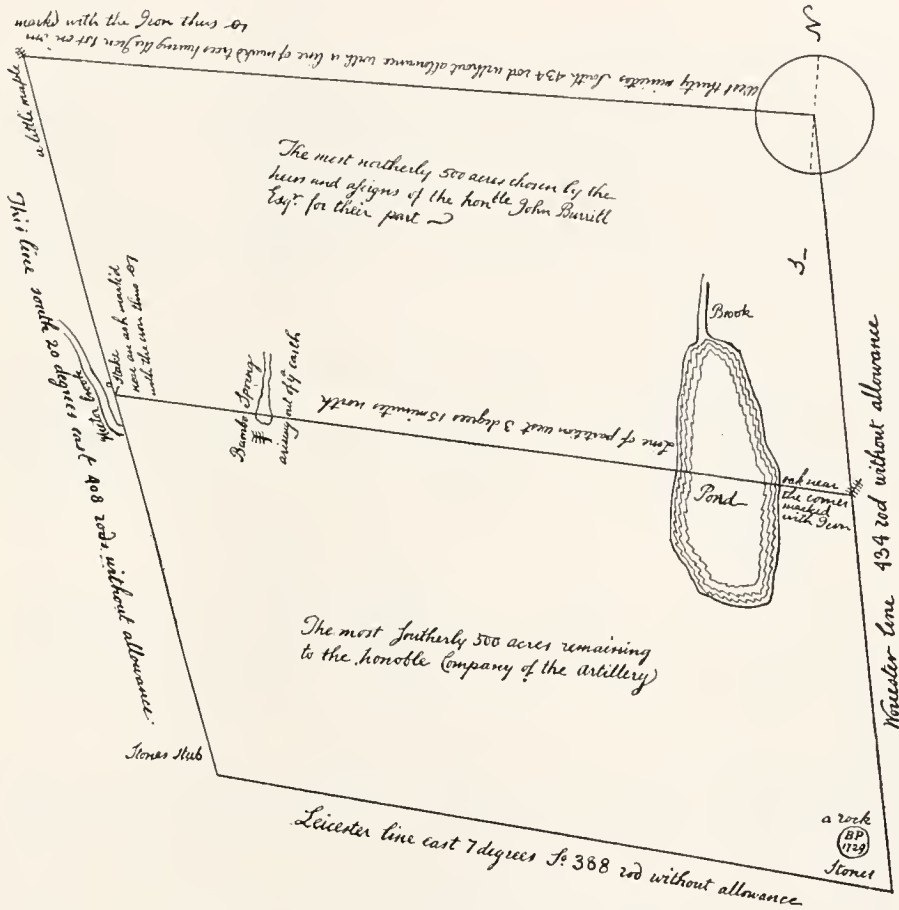 West thirty minutes South 434 rod without allowance with a line of markd trees having the Iron 1st on
markd with the Iron thus 10
N
S
a little maple
The most northerly 500 acres chosen by the
heirs and assigns of the honble John Burrill
Esqr. for their part
This line south 20 degrees east 408 rods without allowance.
a Stake
near an ash markid
with the iron thus 10
brook
Bumbo Spring
arising out of ye earth
Line of partition west 3 degrees 15 minutes north
Brook
Pond
oak near
the corner
marked
with Iron
Worcester line 434 rod without allowance
The most Southerly 500 acres remaining
to the honoble Company of the artillery
Stones Stub
Leicester line east 7 degrees So. 388 rod without allowance
a rock
BP
1729
Stones